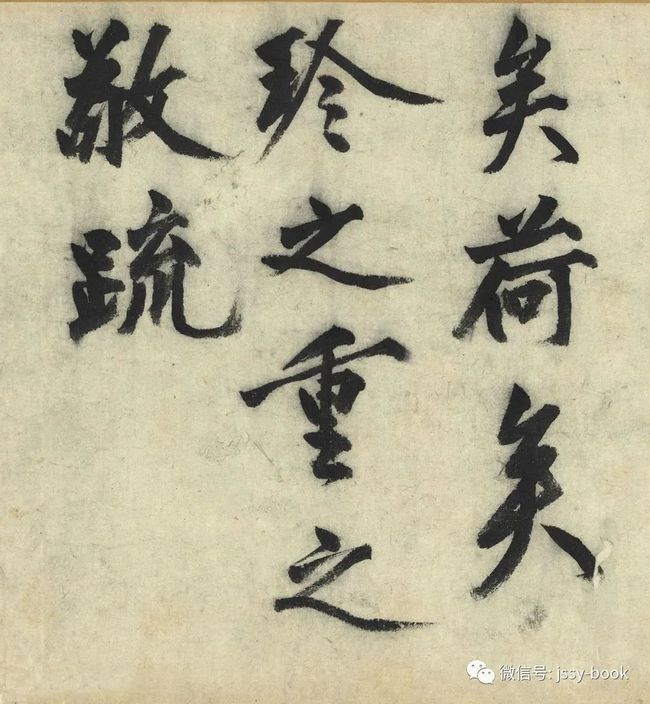 矣荷矣
珍之重之
敬疏
微信号: jssy-book